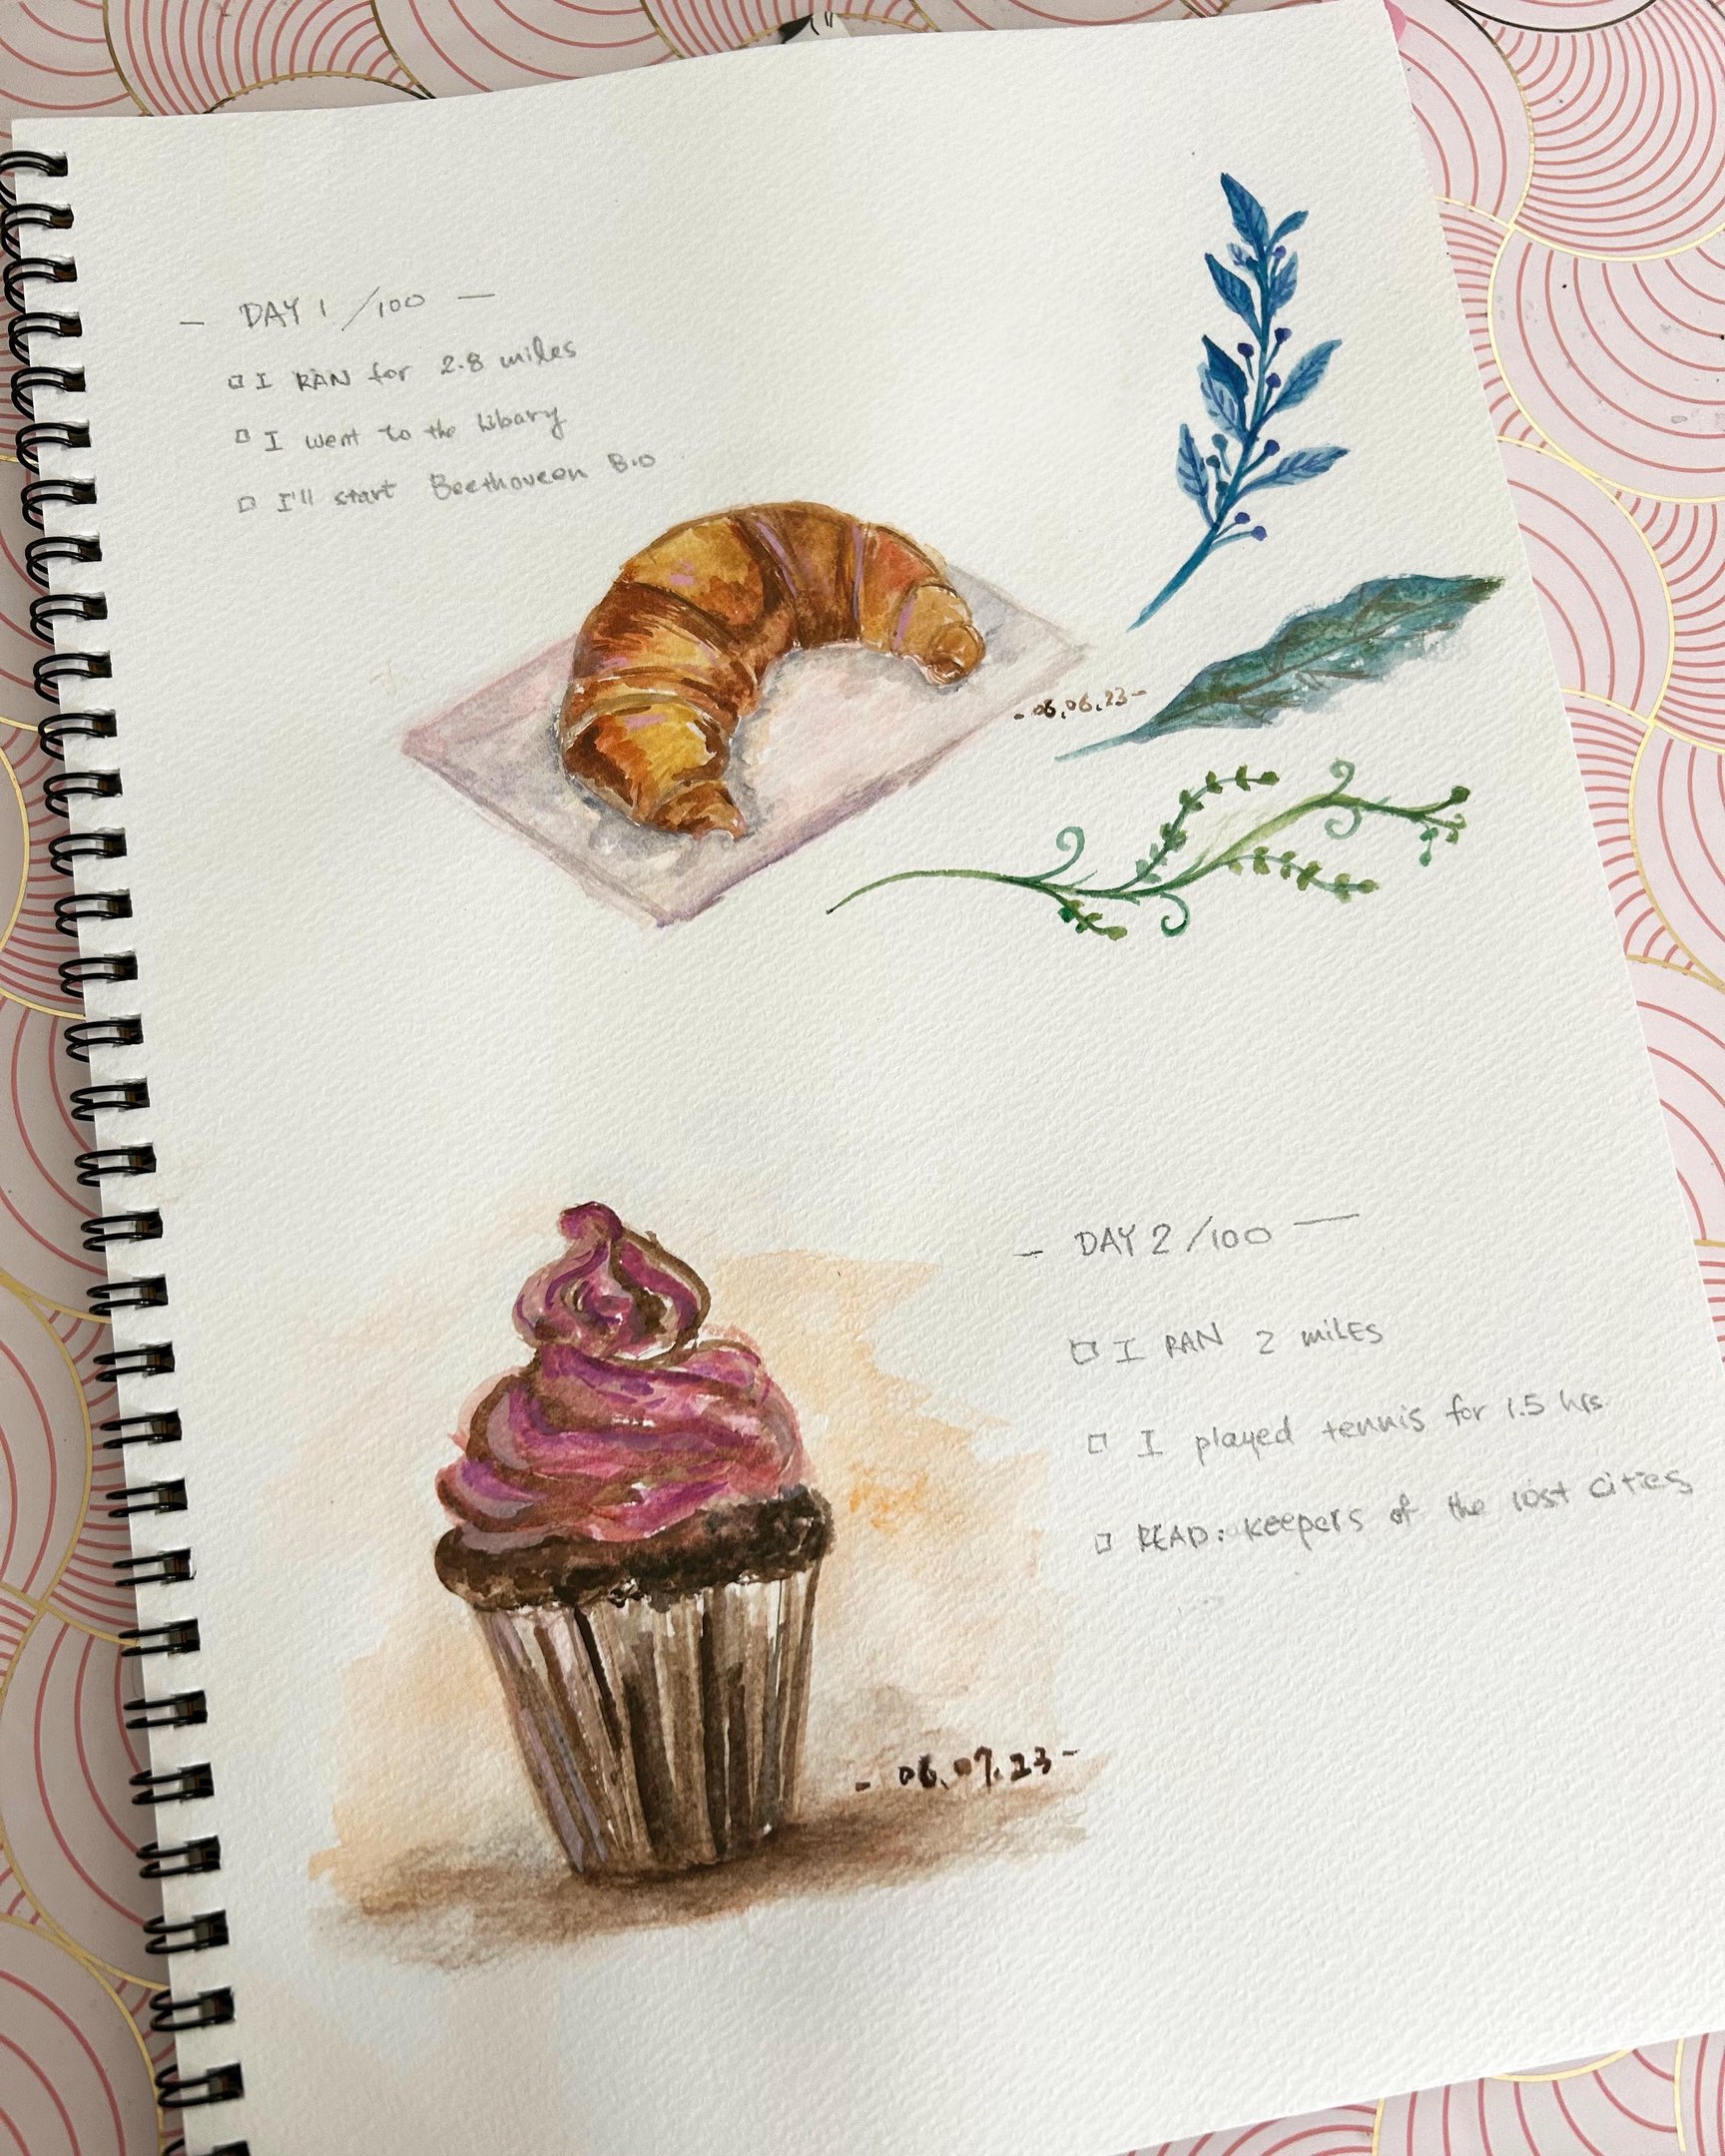 - DAY 1 /100 -
□ I RAN for 2.8 miles
□ I went to the libary
□ I'll start Beethoveen Bio
- 06.06.23 -
- DAY 2 /100 -
□ I RAN 2 milES
□ I played tennis for 1.5 hrs.
□ READ: keepers of the lost cities
- 06.07.23 -